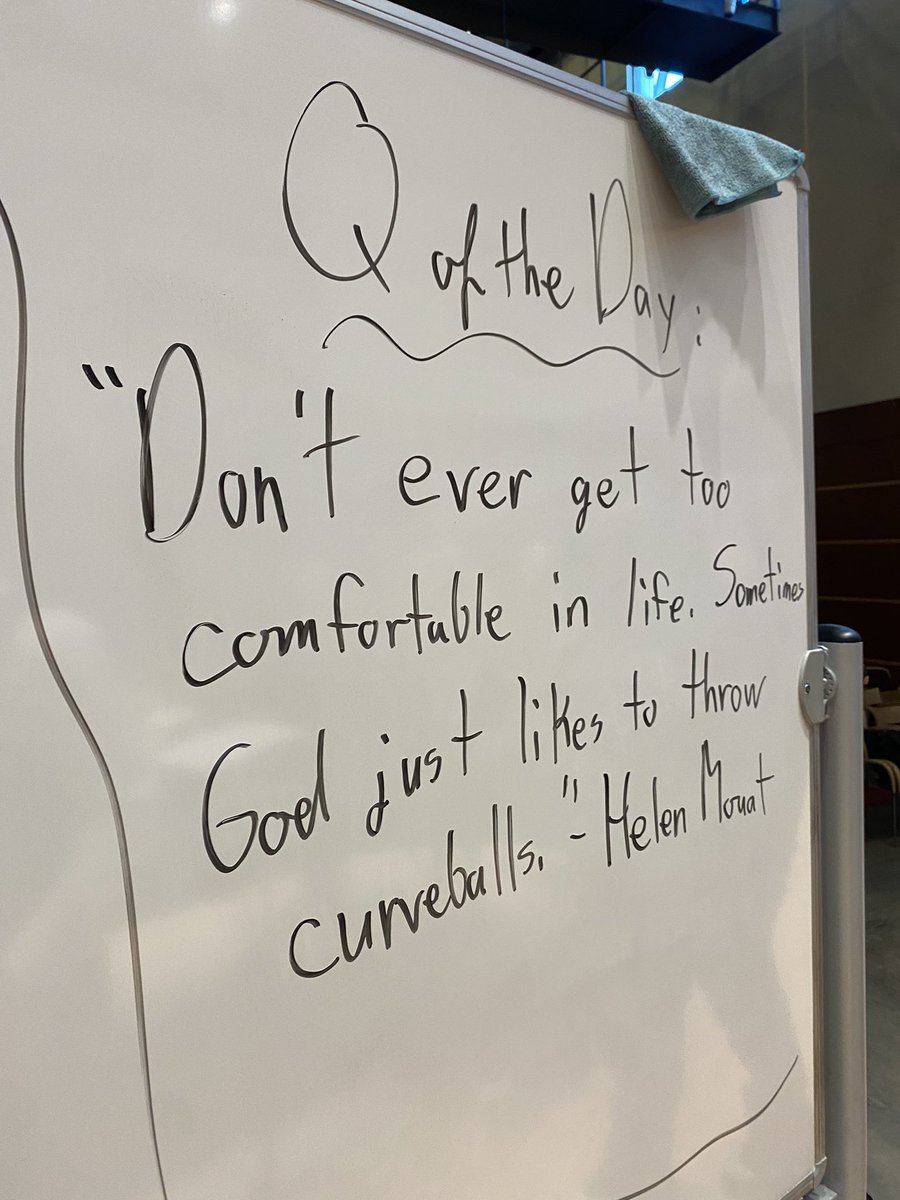 Q of the Day:
"Don't ever get too
comfortable in life. Sometimes
God just likes to throw
curveballs." - Helen Mouat